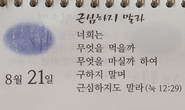 근심하지 말라
너희는
무엇을 먹을까
무엇을 마실까 하여
구하지 말며
근심하지도 말라 (눅 12:29)
8월 21일